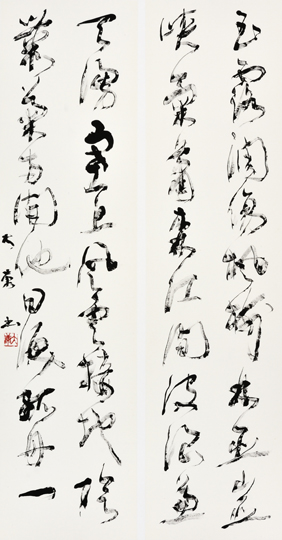 玉露凋傷楓樹林巫山巫
峽氣蕭森江間波浪兼
天湧塞上風雲接地陰
叢菊兩開他日淚孤舟一
書